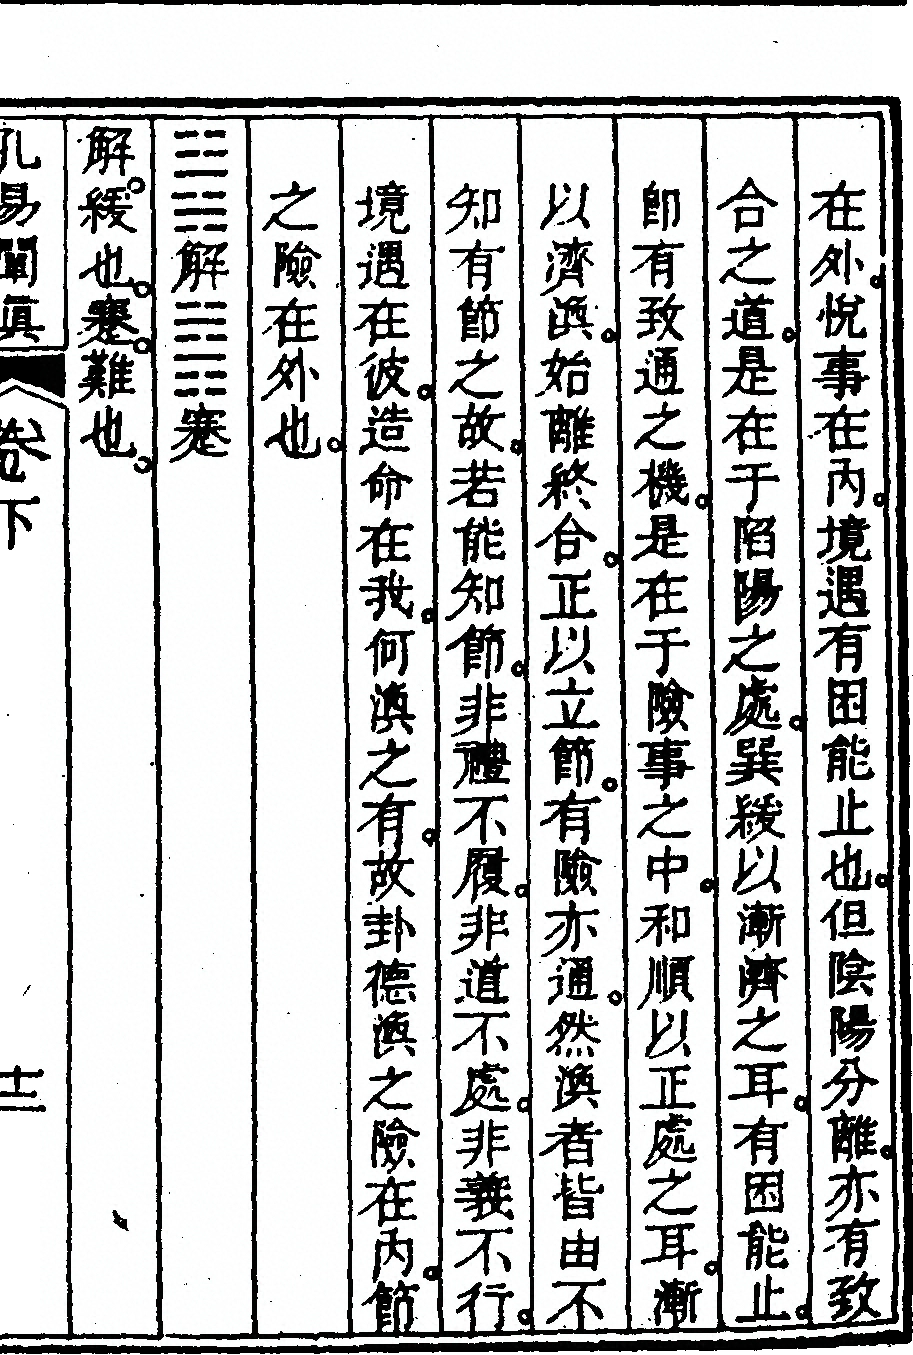 在外。悅事在內。境遇有困能止也。但陰陽分離。亦有致
合之道。是在于陷陽之處。巽緩以漸濟之耳。有困能止。
卽有致通之機。是在于險事之中。和順以正處之耳。漸
以濟渙。始離終合。正以立節。有險亦通。然渙者皆由不
知有節之故。若能知節。非禮不履。非道不處。非義不行。
境遇在彼。造命在我。何渙之有。故卦德渙之險在內。節
之險在外也。
䷧解䷦蹇
解。緩也。蹇。難也。
孔易闡眞 卷下 十二